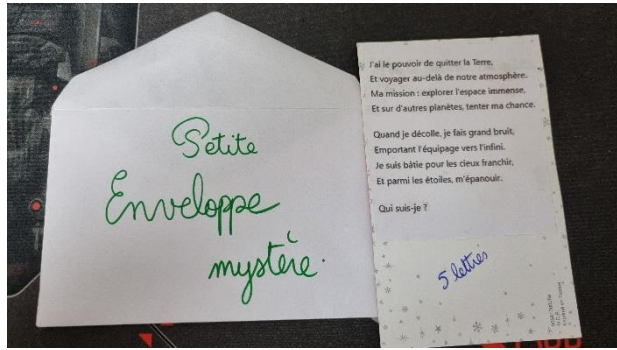 Petite
Enveloppe
mystère.
J'ai le pouvoir de quitter la Terre,
Et voyager au-delà de notre atmosphère.
Ma mission : explorer l'espace immense,
Et sur d'autres planètes, tenter ma chance.
Quand je décolle, je fais grand bruit,
Emportant l'équipage vers l'infini.
Je suis bâtie pour les cieux franchir,
Et parmi les étoiles, m'épanouir.
Qui suis-je ?
5 lettres